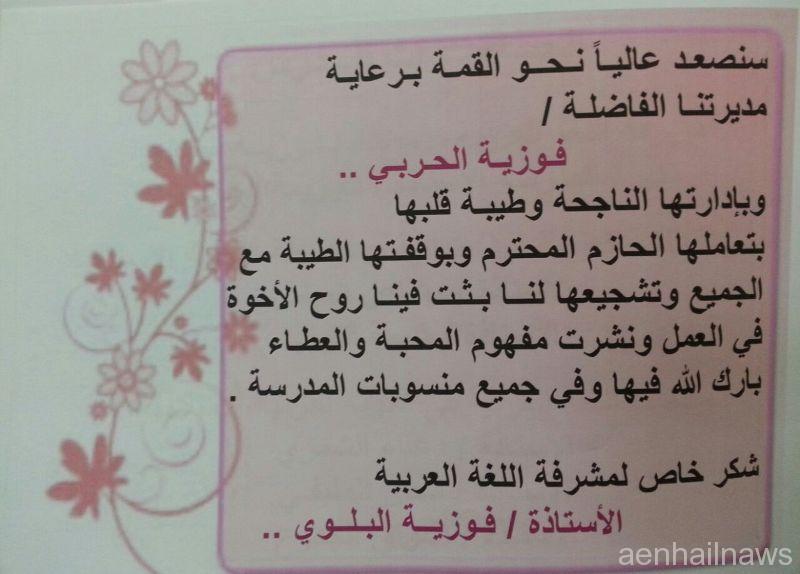 سنصعد عالياً نحو القمة برعاية
مديرتنا الفاضلة /
فوزية الحربي ..
وبإدارتها الناجحة وطيبة قلبها
بتعاملها الحازم المحترم وبوقفتها الطيبة مع
الجميع وتشجيعها لنا بثت فينا روح الأخوة
في العمل ونشرت مفهوم المحبة والعطاء
بارك الله فيها وفي جميع منسوبات المدرسة .
شكر خاص لمشرفة اللغة العربية
الأستاذة / فوزية البلوي ..
aenhailnaws